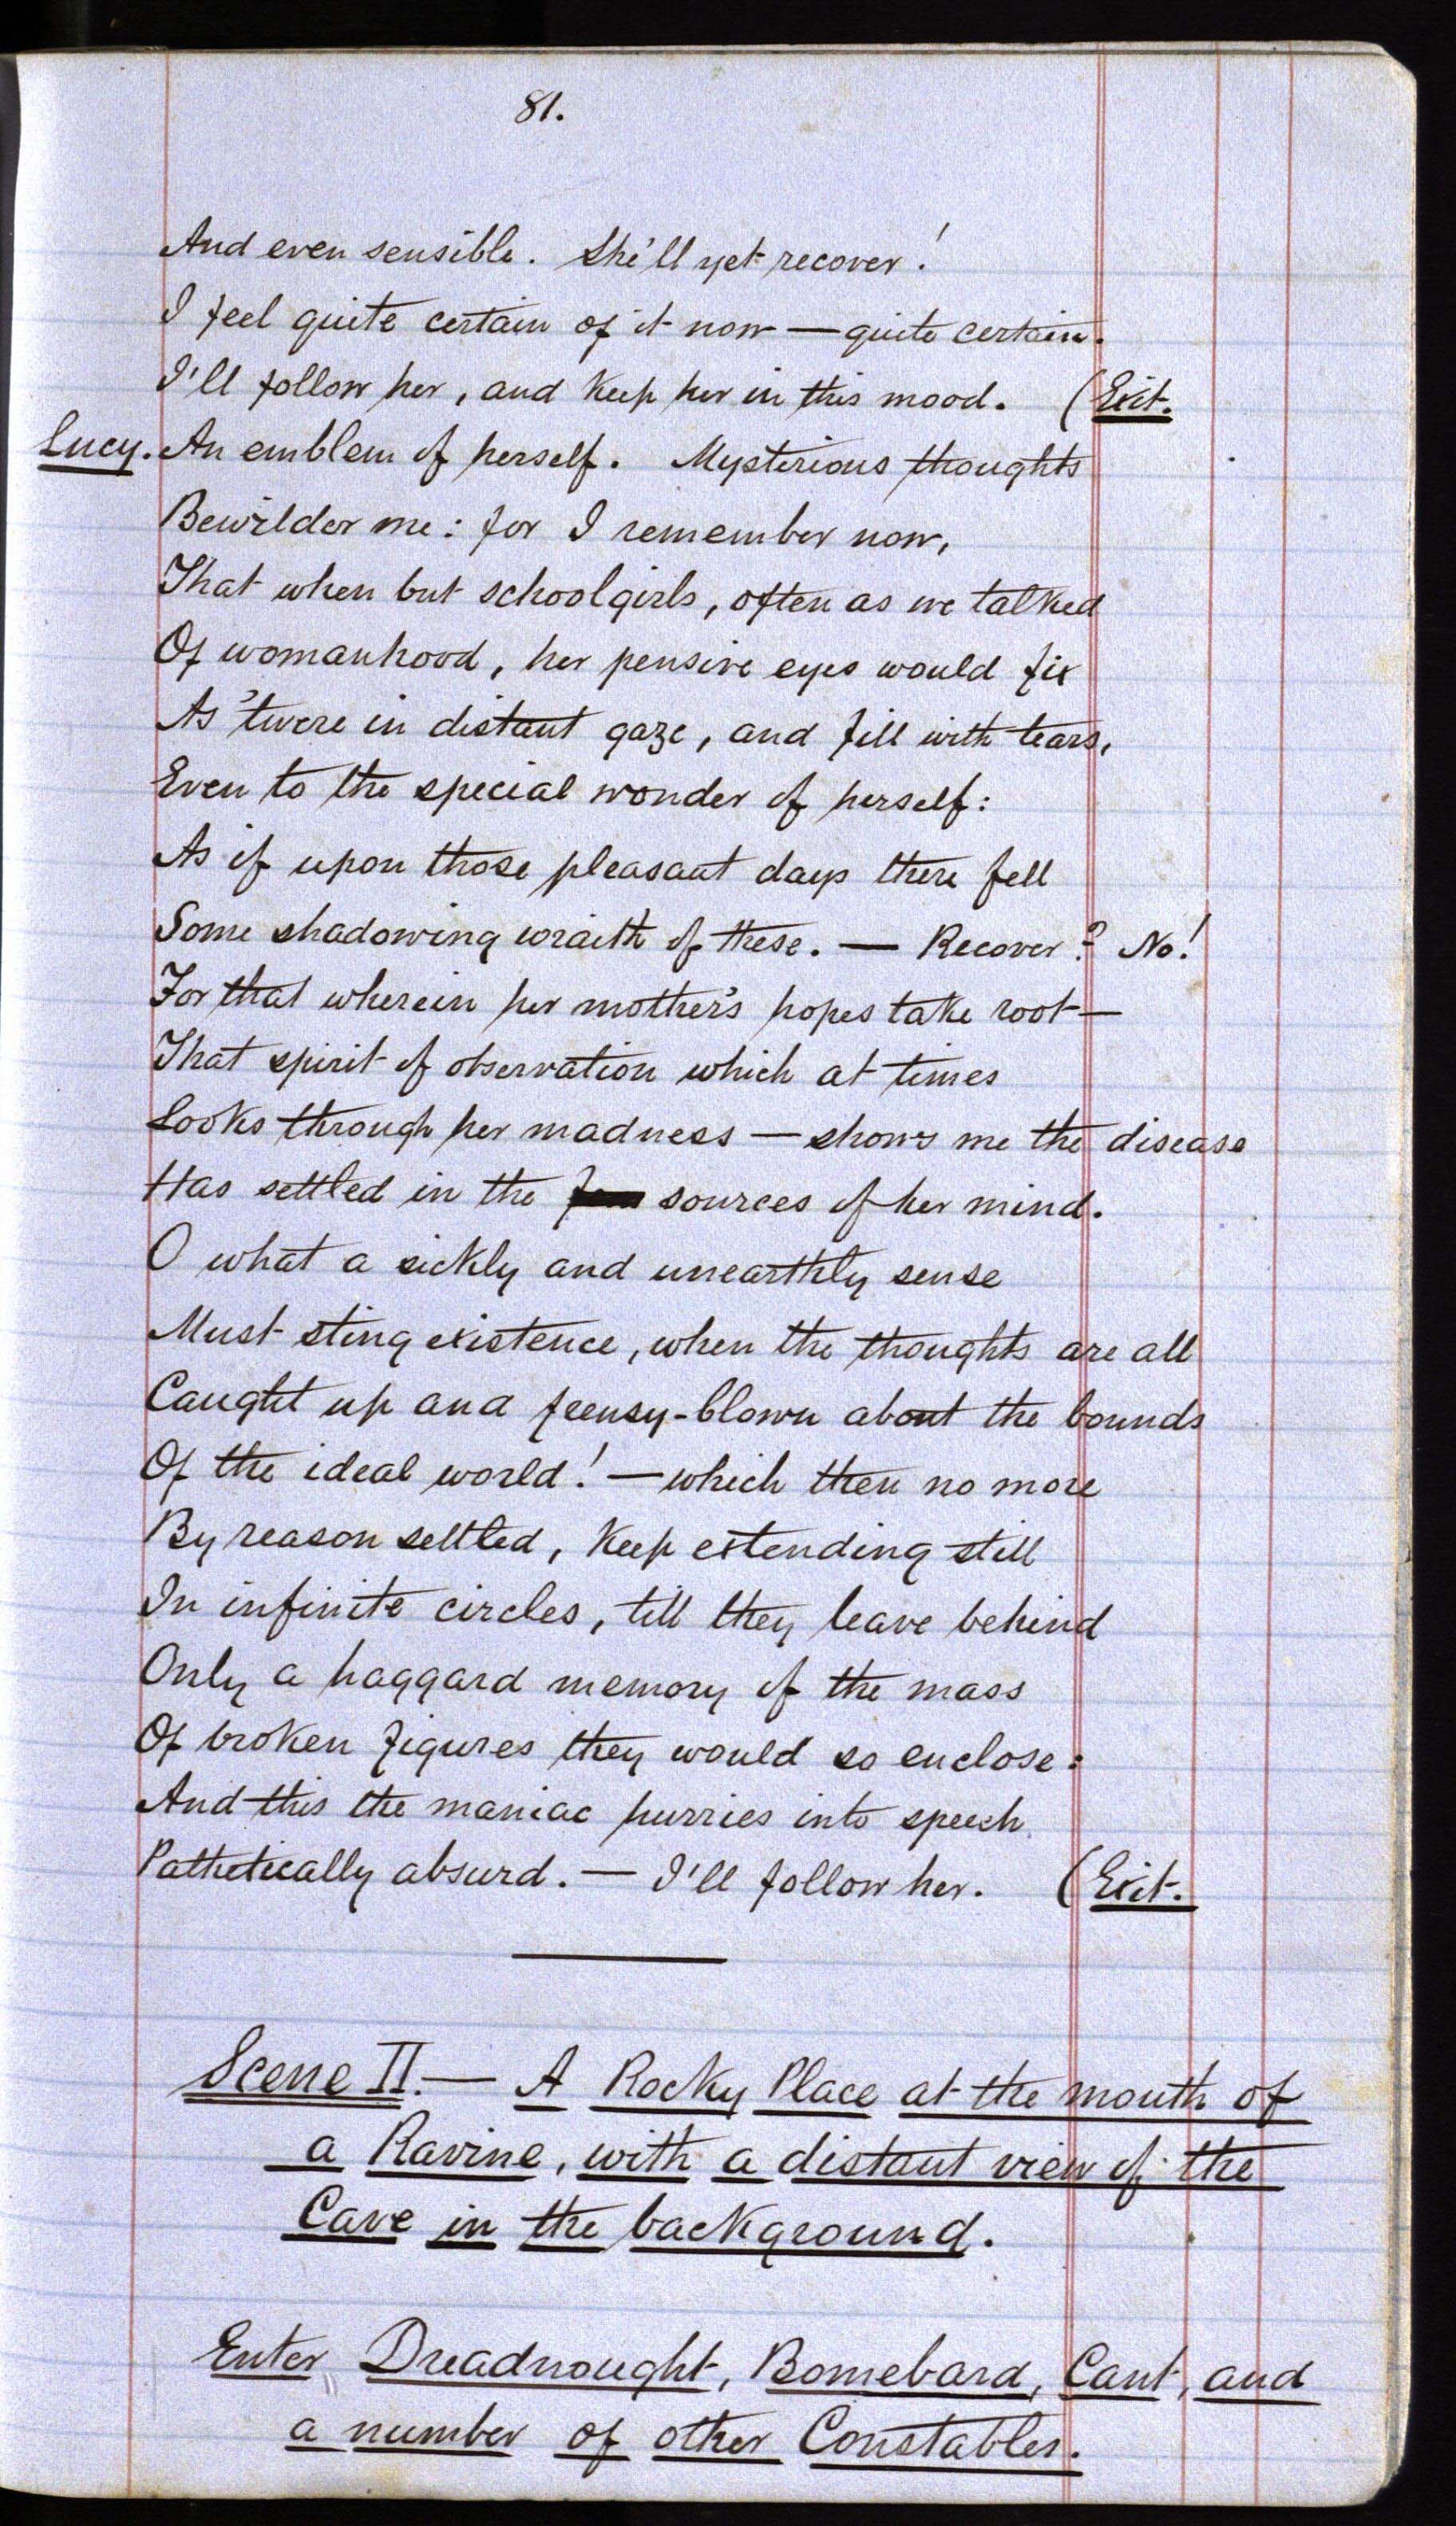 81.
And even sensible. She'll yet recover!
I feel quite certain of it now — quite certain.
I'll follow her, and keep her in this mood. (Exit.
Lucy. An emblem of herself. Mysterious thoughts
Bewilder me: for I remember now,
That when but schoolgirls, often as we talked
Of womanhood, her pensive eyes would fix
As 'twere in distant gaze, and fill with tears,
Even to the special wonder of herself:
As if upon those pleasant days there fell
Some shadowing wraith of these. — Recover? No!
For that wherein her mother's hopes take root —
That spirit of observation which at times
Looks through her madness — shows me the disease
Has settled in the sources of her mind.
O what a sickly and unearthly sense
Must sting existence, when the thoughts are all
Caught up and frensy-blown about the bounds
Of the ideal world! — which then no more
By reason settled, keep extending still
In infinite circles, till they leave behind
Only a haggard memory of the mass
Of broken figures they would so enclose:
And this the maniac hurries into speech
Pathetically absurd. — I'll follow her. (Exit.
Scene II. — A Rocky Place at the mouth of
a Ravine, with a distant view of the
Cave in the background.
Enter Dreadnought, Bomebard, Cant, and
a number of other Constables.